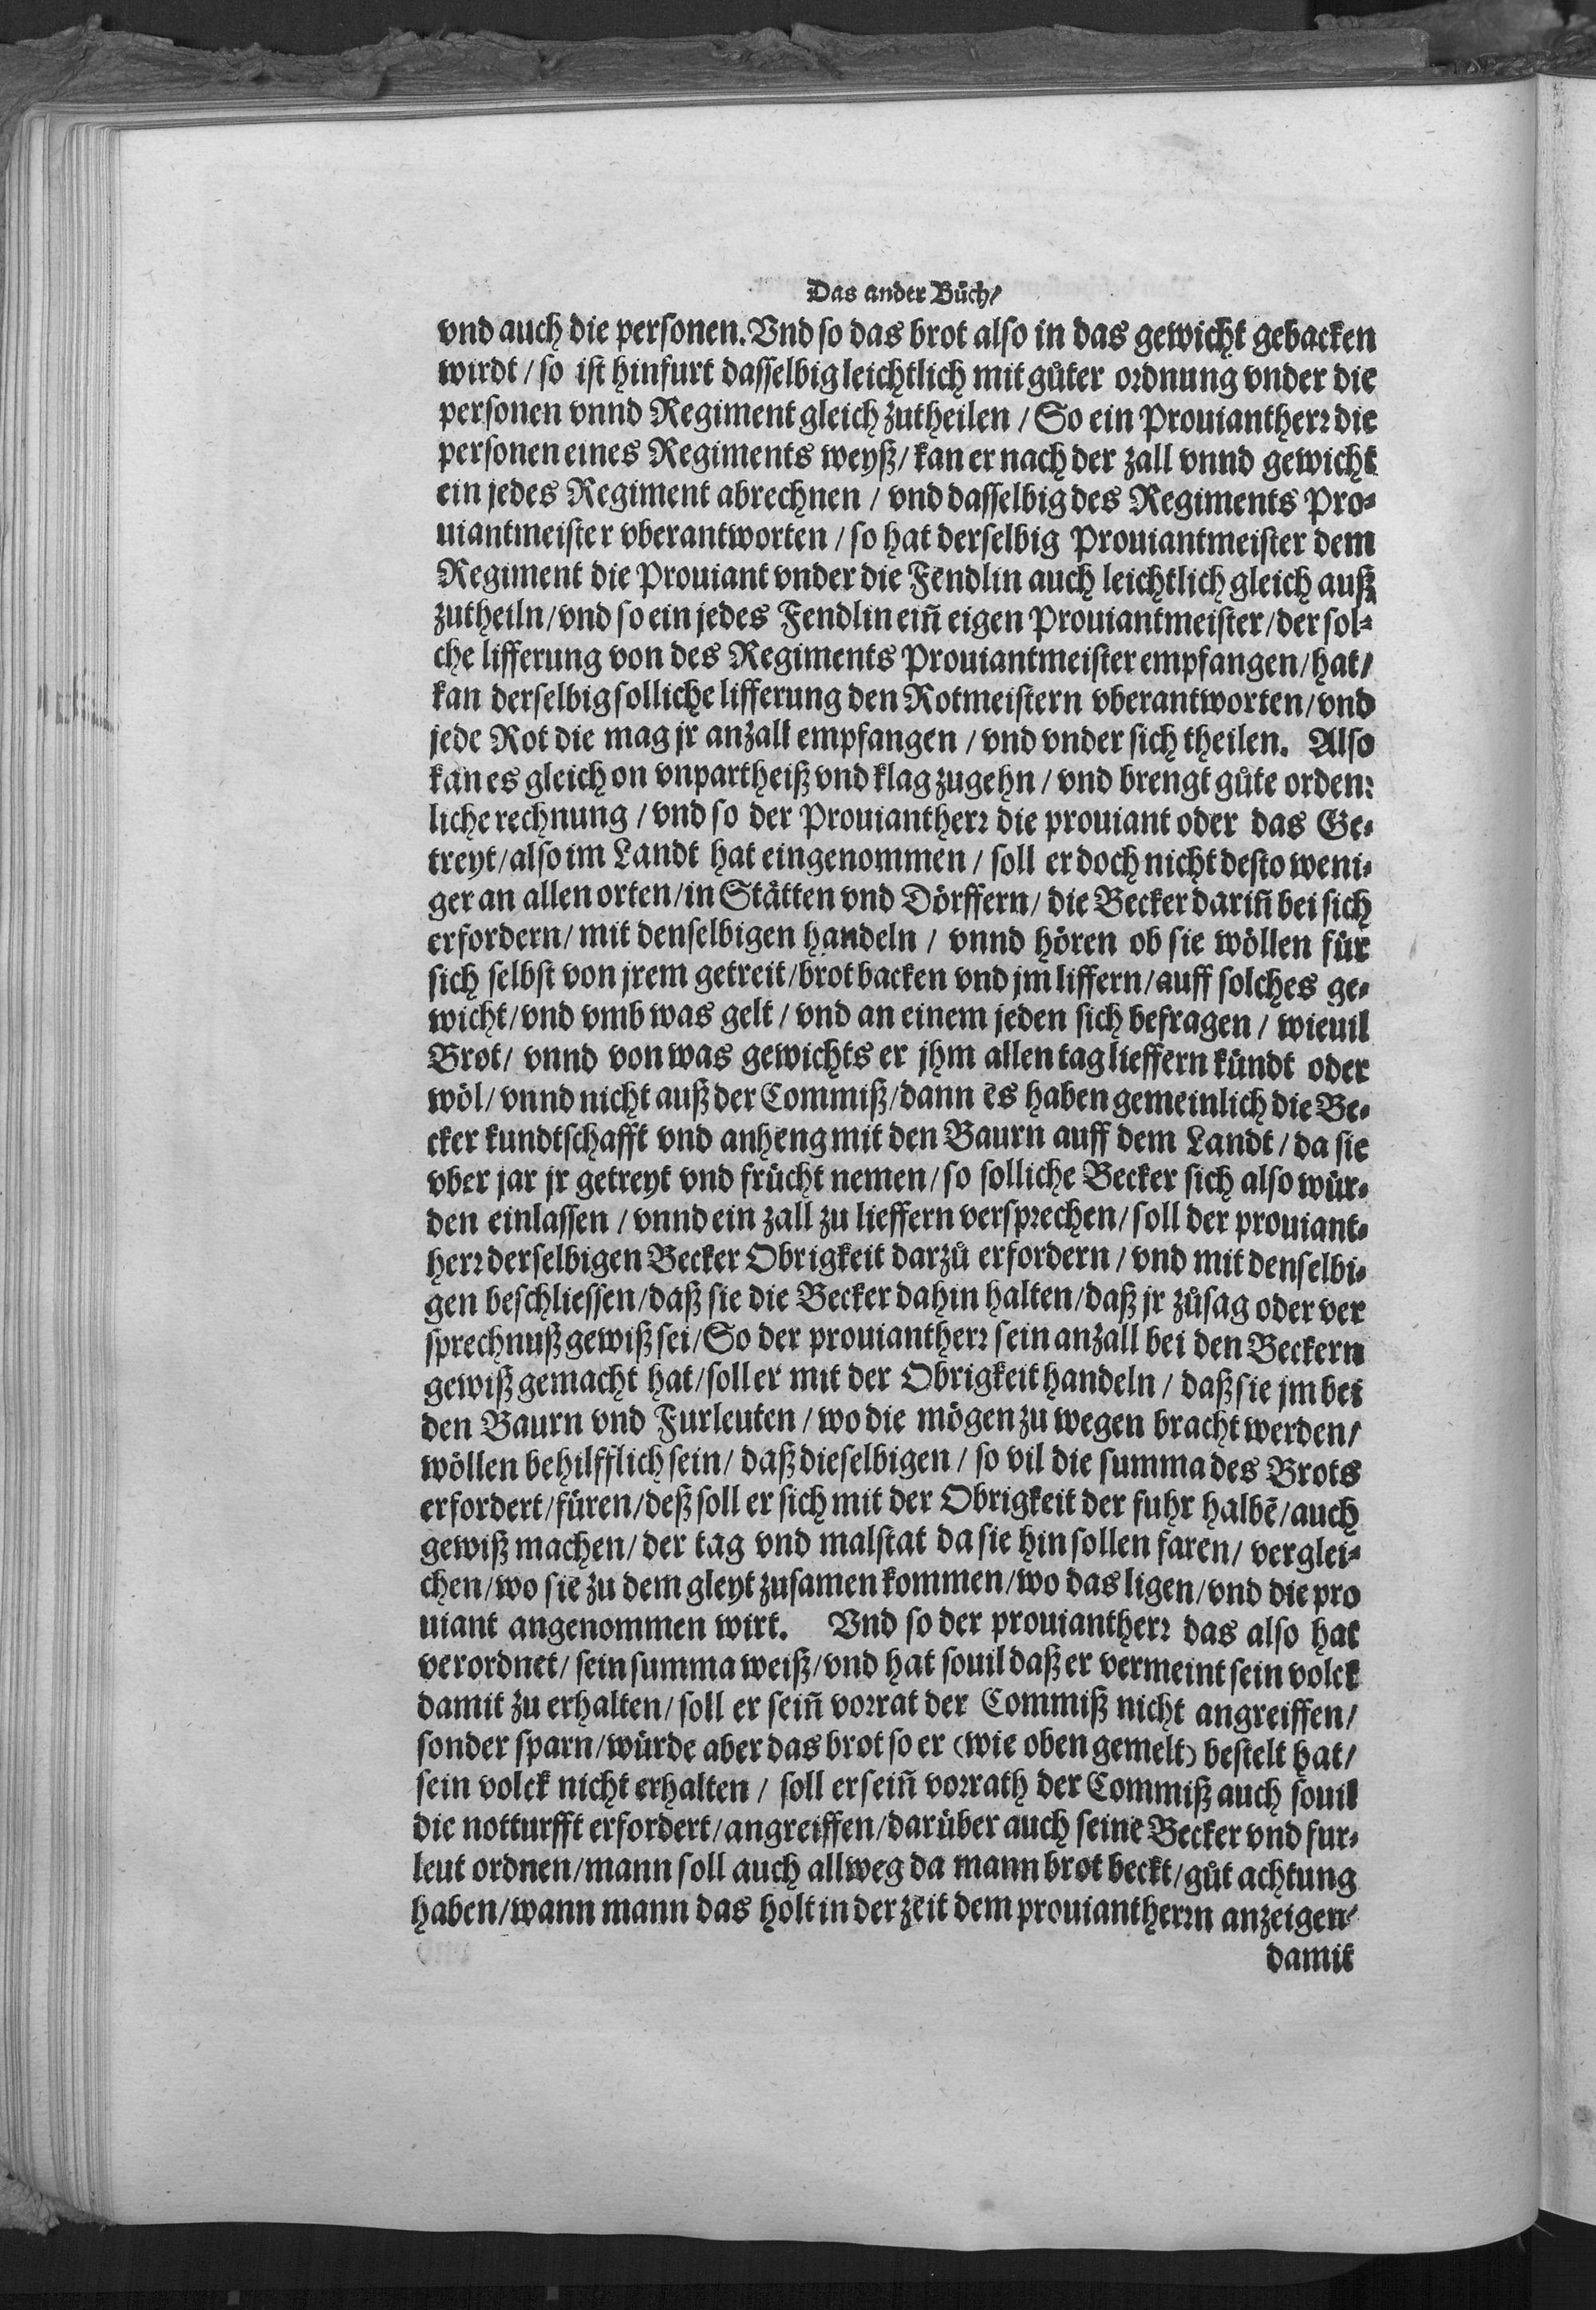 Das ander Bůch/
vnd auch die personen. Vnd so das brot also in das gewicht gebacken
wirdt / so ist hinfurt dasselbig leichtlich mit gůter ordnung vnder die
personen vnnd Regiment gleich zutheilen / So ein Prouiantherr die
personen eines Regiments weyß / kan er nach der zall vnnd gewicht
ein jedes Regiment abrechnen / vnd dasselbig des Regiments Pro-
uiantmeister vberantworten / so hat derselbig Prouiantmeister dem
Regiment die Prouiant vnder die Fendlin auch leichtlich gleich auß
zutheiln / vnd so ein jedes Fendlin ein̄ eigen Prouiantmeister / der sol-
che lifferung von des Regiments Prouiantmeister empfangen / hat /
kan derselbig solliche lifferung den Rotmeistern vberantworten / vnd
jede Rot die mag jr anzall empfangen / vnd vnder sich theilen. Also
kan es gleich on vnpartheiß vnd klag zugehn / vnd brengt gůte orden-
liche rechnung / vnd so der Prouiantherr die prouiant oder das Ge-
treyt / also im Landt hat eingenommen / soll er doch nicht desto weni-
ger an allen orten / in Stätten vnd Dörffern / die Becker darin̄ bei sich
erfordern / mit denselbigen handeln / vnnd hören ob sie wöllen für
sich selbst von jrem getreit / brot backen vnd jm liffern / auff solches ge-
wicht / vnd vmb was gelt / vnd an einem jeden sich befragen / wieuil
Brot / vnnd von was gewichts er jhm allen tag lieffern kündt oder
wöl / vnnd nicht auß der Commiß / dann es haben gemeinlich die Be-
cker kundtschafft vnd anheng mit den Baurn auff dem Landt / da sie
vber jar jr getreyt vnd frücht nemen / so solliche Becker sich also wür-
den einlassen / vnnd ein zall zu lieffern versprechen / soll der prouiant-
herr derselbigen Becker Obrigkeit darzů erfordern / vnd mit denselbi-
gen beschliessen / daß sie die Becker dahin halten / daß jr zůsag oder ver
sprechnuß gewiß sei / So der prouiantherr sein anzall bei den Beckern
gewiß gemacht hat / soll er mit der Obrigkeit handeln / daß sie jm bei
den Baurn vnd Furleuten / wo die mögen zu wegen bracht werden /
wöllen behilfflich sein / daß dieselbigen / so vil die summa des Brots
erfordert / füren / deß soll er sich mit der Obrigkeit der fuhr halbē / auch
gewiß machen / der tag vnd malstat da sie hin sollen faren / verglei-
chen / wo sie zu dem gleyt zusamen kommen / wo das ligen / vnd die pro
uiant angenommen wirt. Vnd so der prouiantherr das also hat
verordnet / sein summa weiß / vnd hat souil daß er vermeint sein volck
damit zu erhalten / soll er sein̄ vorrat der Commiß nicht angreiffen /
sonder sparn / würde aber das brot so er (wie oben gemelt) bestelt hat /
sein volck nicht erhalten / soll er sein̄ vorrath der Commiß auch souil
die notturfft erfordert / angreiffen / darüber auch seine Becker vnd fur-
leut ordnen / mann soll auch allweg da mann brot beckt / gůt achtung
haben / wann mann das holt in der zeit dem prouiantherrn anzeigen /
damit